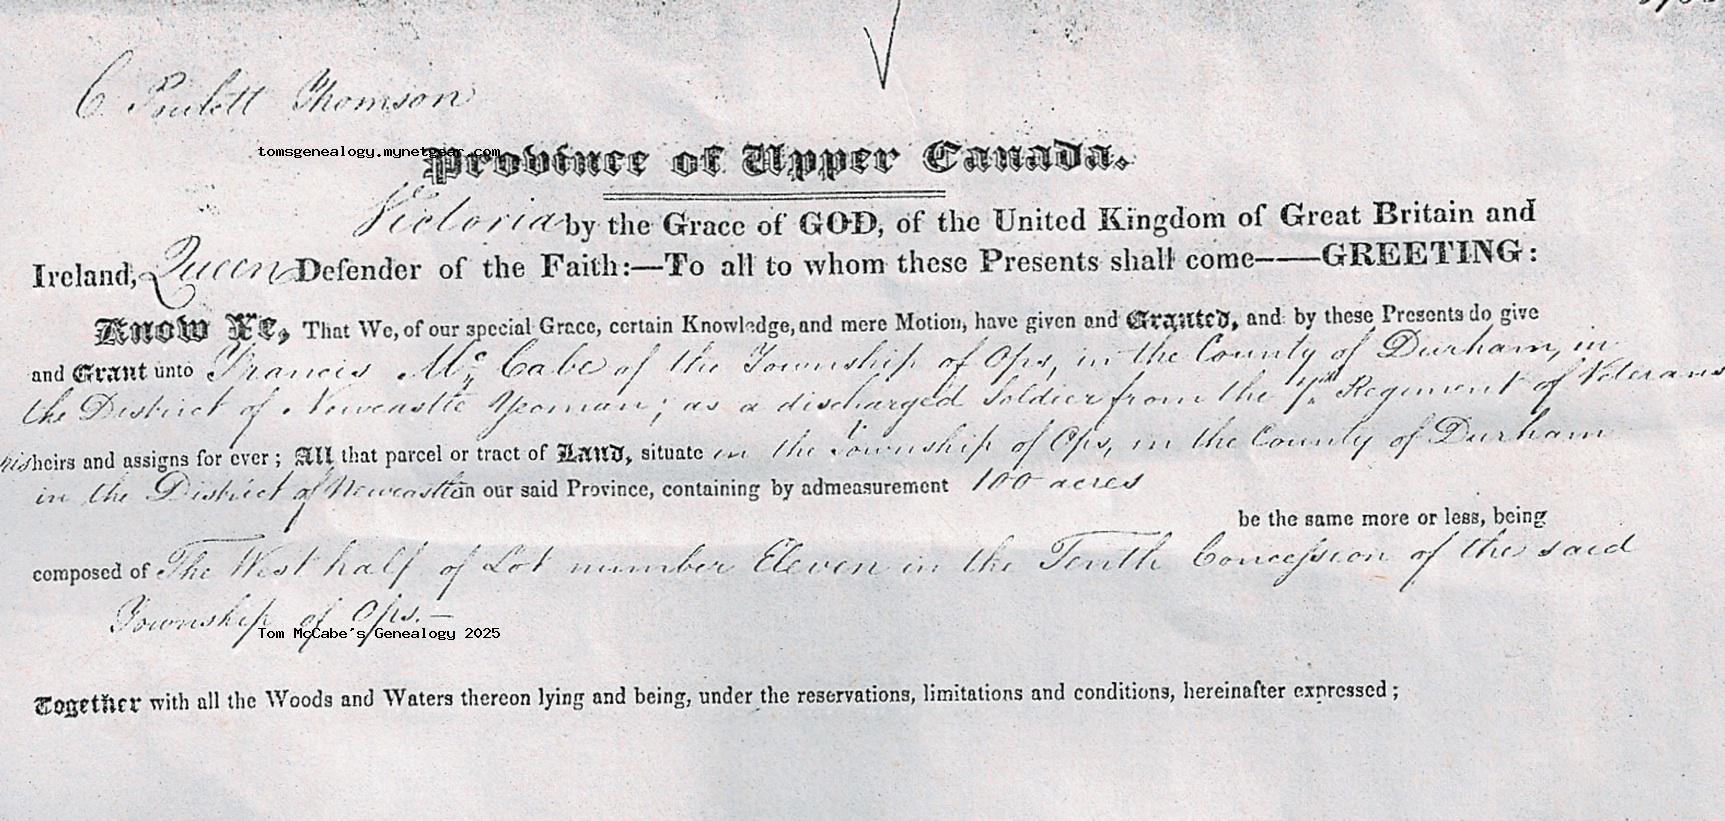 C Poulett Thomson
tomsgenealogy.mynetgear.com
Province of Upper Canada.
Victoria by the Grace of GOD, of the United Kingdom of Great Britain and
Ireland, Queen Defender of the Faith:—To all to whom these Presents shall come——GREETING:
Know Ye, That We, of our special Grace, certain Knowledge, and mere Motion, have given and Granted, and by these Presents do give
and Grant unto Francis Mc Cabe of the Township of Ops, in the County of Durham, in
the District of Newcastle Yeoman; as a discharged Soldier from the Regiment of Veterans
his heirs and assigns for ever; All that parcel or tract of Land, situate in the Township of Ops, in the County of Durham
in the District of Newcastle in our said Province, containing by admeasurement 100 acres
be the same more or less, being
composed of The West half of Lot number Eleven in the Tenth Concession of the said
Township of Ops.—
Tom McCabe's Genealogy 2025
Together with all the Woods and Waters thereon lying and being, under the reservations, limitations and conditions, hereinafter expressed;